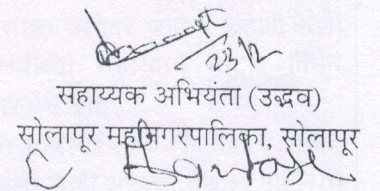 23/2
सहाय्यक अभियंता (उद्धव)
सोलापूर महानगरपालिका, सोलापूर